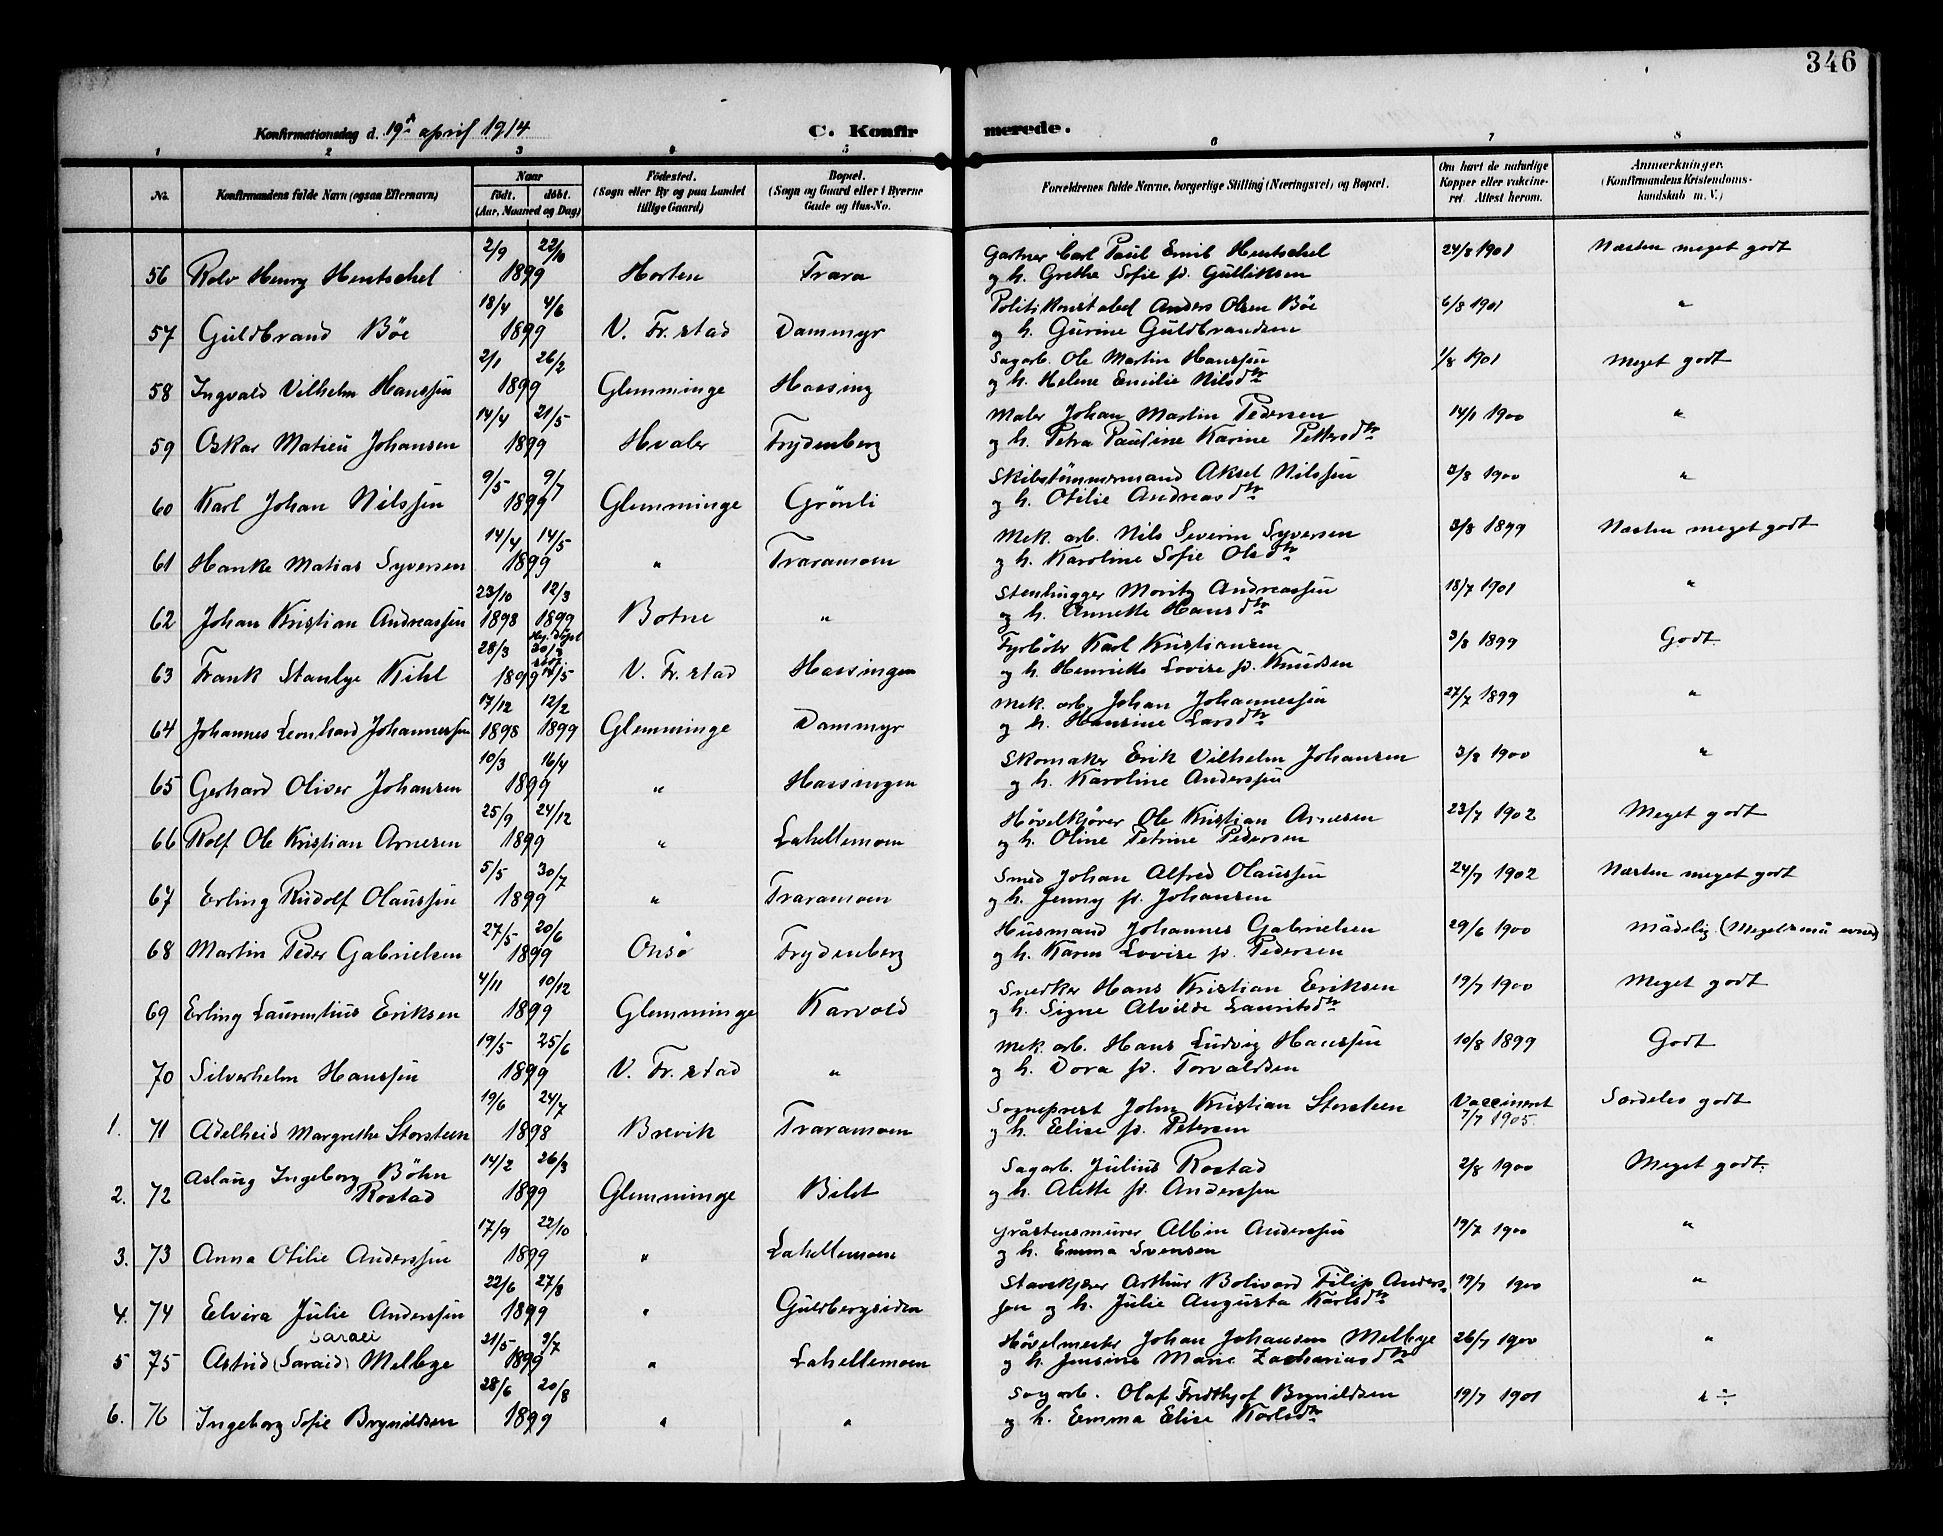 346
Konfirmationsdag d. 19de april 1914 C. Konfirmerede.
1 2 3 4 5 6 7 8
No. Konfirmandens fulde Navn (ogsaa Efternavn) Naar født. døbt. (Aar, Maaned og Dag) Fødested. (Sogn eller By og paa Landet tillige Gaard) Bopæl. (Sogn og Gaard eller i Byerne Gade og Hus-No. Forældrenes fulde Navne, borgerlige Stilling (Næringsvei) og Bopæl. Om havt de naturlige Kopper eller vakcineret. Attest herom. Anmærkninger. (Konfirmandens Kristendomskundskab m. V.)
56 Rolv Henry Hentschel 2/9 22/10 1899 Horten Trara Gartner Carl Paul Emil Hentschel 24/8 1901 Næsten meget godt
og h. Grethe Sofie f. Gulliksen
57 Guldbrand Böe 18/4 4/6 1899 V. Fr.stad Dammyr Politikonstabel Anders Olsen Böe 6/8 1901 "
og h. Gurine Guldbrandsen
58 Ingvald Vilhelm Hanssen 2/1 26/2 1899 Glemminge Hassing Sagarb. Ole Martin Hanssen 1/8 1901 Meget godt
og h. Helene Emilie Nilsdtr
59 Oskar Matieu Johansen 14/4 21/5 1899 Hvaler Frydenberg Maler Johan Martin Pedersen 14/1 1900 "
og h. Petra Pauline Karine Pettersdtr
60 Karl Johan Nilssen 9/5 9/7 1899 Glemminge Grönli Skibstømmermand Aksel Nilssen 3/8 1900 "
og h. Otilie Andreasdtr
61 Hanke Matias Syversen 14/4 14/5 1899 " Traramoen Mek. arb. Nils Severin Syversen 3/8 1899 Næsten meget godt
og h. Karoline Sofie Olsdtr
62 Johan Kristian Andreassen 23/10 1898 12/3 1899 Botne " Stenhugger Moritz Andreassen 18/7 1901 "
og h. Annette Hansdtr
63 Frank Stanlye Kihl 28/3 1899 Hj. döpt 30/3 14/5 V. Fr.stad Hassingen Fyrböter Karl Kristiansen 3/8 1899 Godt.
og h. Henriette Lovise f. Knudsen
64 Johannes Leonhard Johannessen 17/12 1898 12/2 1899 Glemminge Dammyr Mek. arb. Johan Johannessen 27/7 1899 "
og h. Hansine Larsdtr
65 Gerhard Oliver Johansen 10/3 16/4 1899 " Hassingen Skomaker Erik Vilhelm Johansen 3/8 1900 "
og h. Karoline Anderssen
66 Rolf Ole Kristian Arnesen 25/9 24/12 1899 " Lahellemoen Hövelkjörer Ole Kristian Arnesen 23/7 1902 Meget godt
og h. Oline Petrine Pedersen
67 Erling Rudolf Olaussen 5/5 30/7 1899 " Traramoen Smed Johan Alfred Olaussen 24/7 1902 Næsten meget godt
og h. Jenny f. Johansen
68 Martin Peder Gabrielsen 27/5 20/6 1899 Onsö Frydenberg Husmand Johannes Gabrielsen 29/6 1900 Mådelig. (Meget små evner)
og h. Karen Lovise f. Pedersen
69 Erling Laurentius Eriksen 4/11 10/12 1899 Glemminge Karvold Snedker Hans Kristian Eriksen 19/7 1900 Meget godt
og h. Signe Alvilde Lauritsdtr
70 Silverhelm Hanssen 19/5 25/6 1899 V. Fr.stad " Mek. arb. Hans Ludvig Hanssen 10/8 1899 Godt
og h. Dora f. Torvaldsen
1. 71 Adelheid Margrethe Storsteen 19/6 24/7 1898 Brevik Traramoen Sogneprest John Kristian Storsteen Vaccineret 7/7 1905. Særdeles godt
og h. Elise f. Petersen
2. 72 Aslaug Ingeborg Böhn Rostad 14/2 26/3 1899 Glemminge Bilet Sagarb. Julius Rostad 2/8 1900 Meget godt.
og h. Alette f. Anderssen
3. 73 Anna Otilie Anderssen 17/9 22/10 1899 " Lahellemoen Gråstensmurer Albin Anderssen 19/7 1900 "
og h. Emma Svensen
4. 74 Elvira Julie Anderssen 22/6 27/8 1899 " Guldbergsiden Stavskjærer Arthur Bolivard Filip Anders- 19/7 1900 "
sen og h. Julie Augusta Karlsdtr
5 75 Astrid (Saraid) Saraei Melbye 21/5 9/7 1899 " Lahellemoen Hövelmester Johan Johansen Melbye 26/7 1900 "
og h. Jensine Marie Zachariasdtr
6. 76 Ingeborg Sofie Brynildsen 28/6 20/8 1899 " " Sagarb. Olaf Fridthjof Brynildsen 19/7 1901 " ÷
og h. Emma Elise Karlsdtr